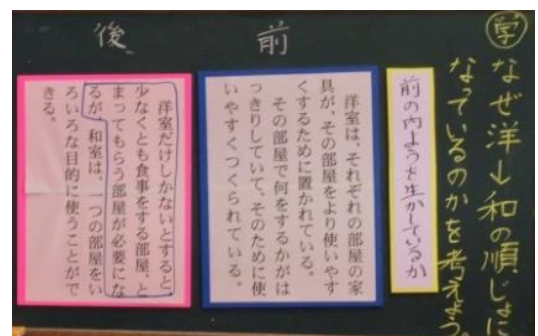 学
なぜ洋→和の順じょに
なっているのかを考えよう
前の内ようを生かしているか
前
洋室は、それぞれの部屋の家
具が、その部屋をより使いやす
くするために置かれている。
その部屋で何をするかがは
っきりしていて、そのために使
いやすくつくられている。
後
洋室だけしかないとすると、
少なくとも食事をする部屋、と
まってもらう部屋が必要にな
るが、和室は、一つの部屋をい
ろいろな目的に使うことがで
きる。